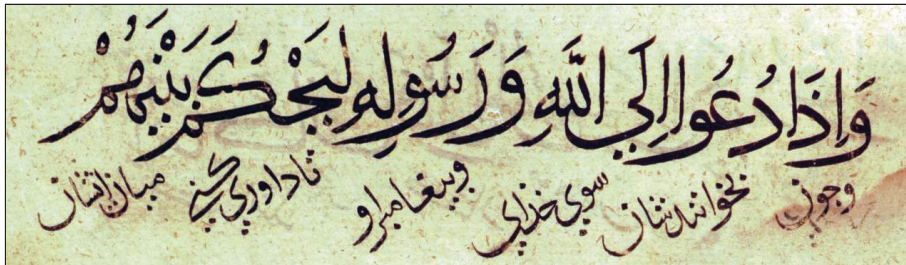 وَاِذَا دُعُوا اِلَي اللَّهِ وَرَسُولِهِ لِيَحْكُمَ بَيْنَهُمْ
وجون بخوانندشان سوی خذای وبیغامبر او تا داوری کنی میان ایشان